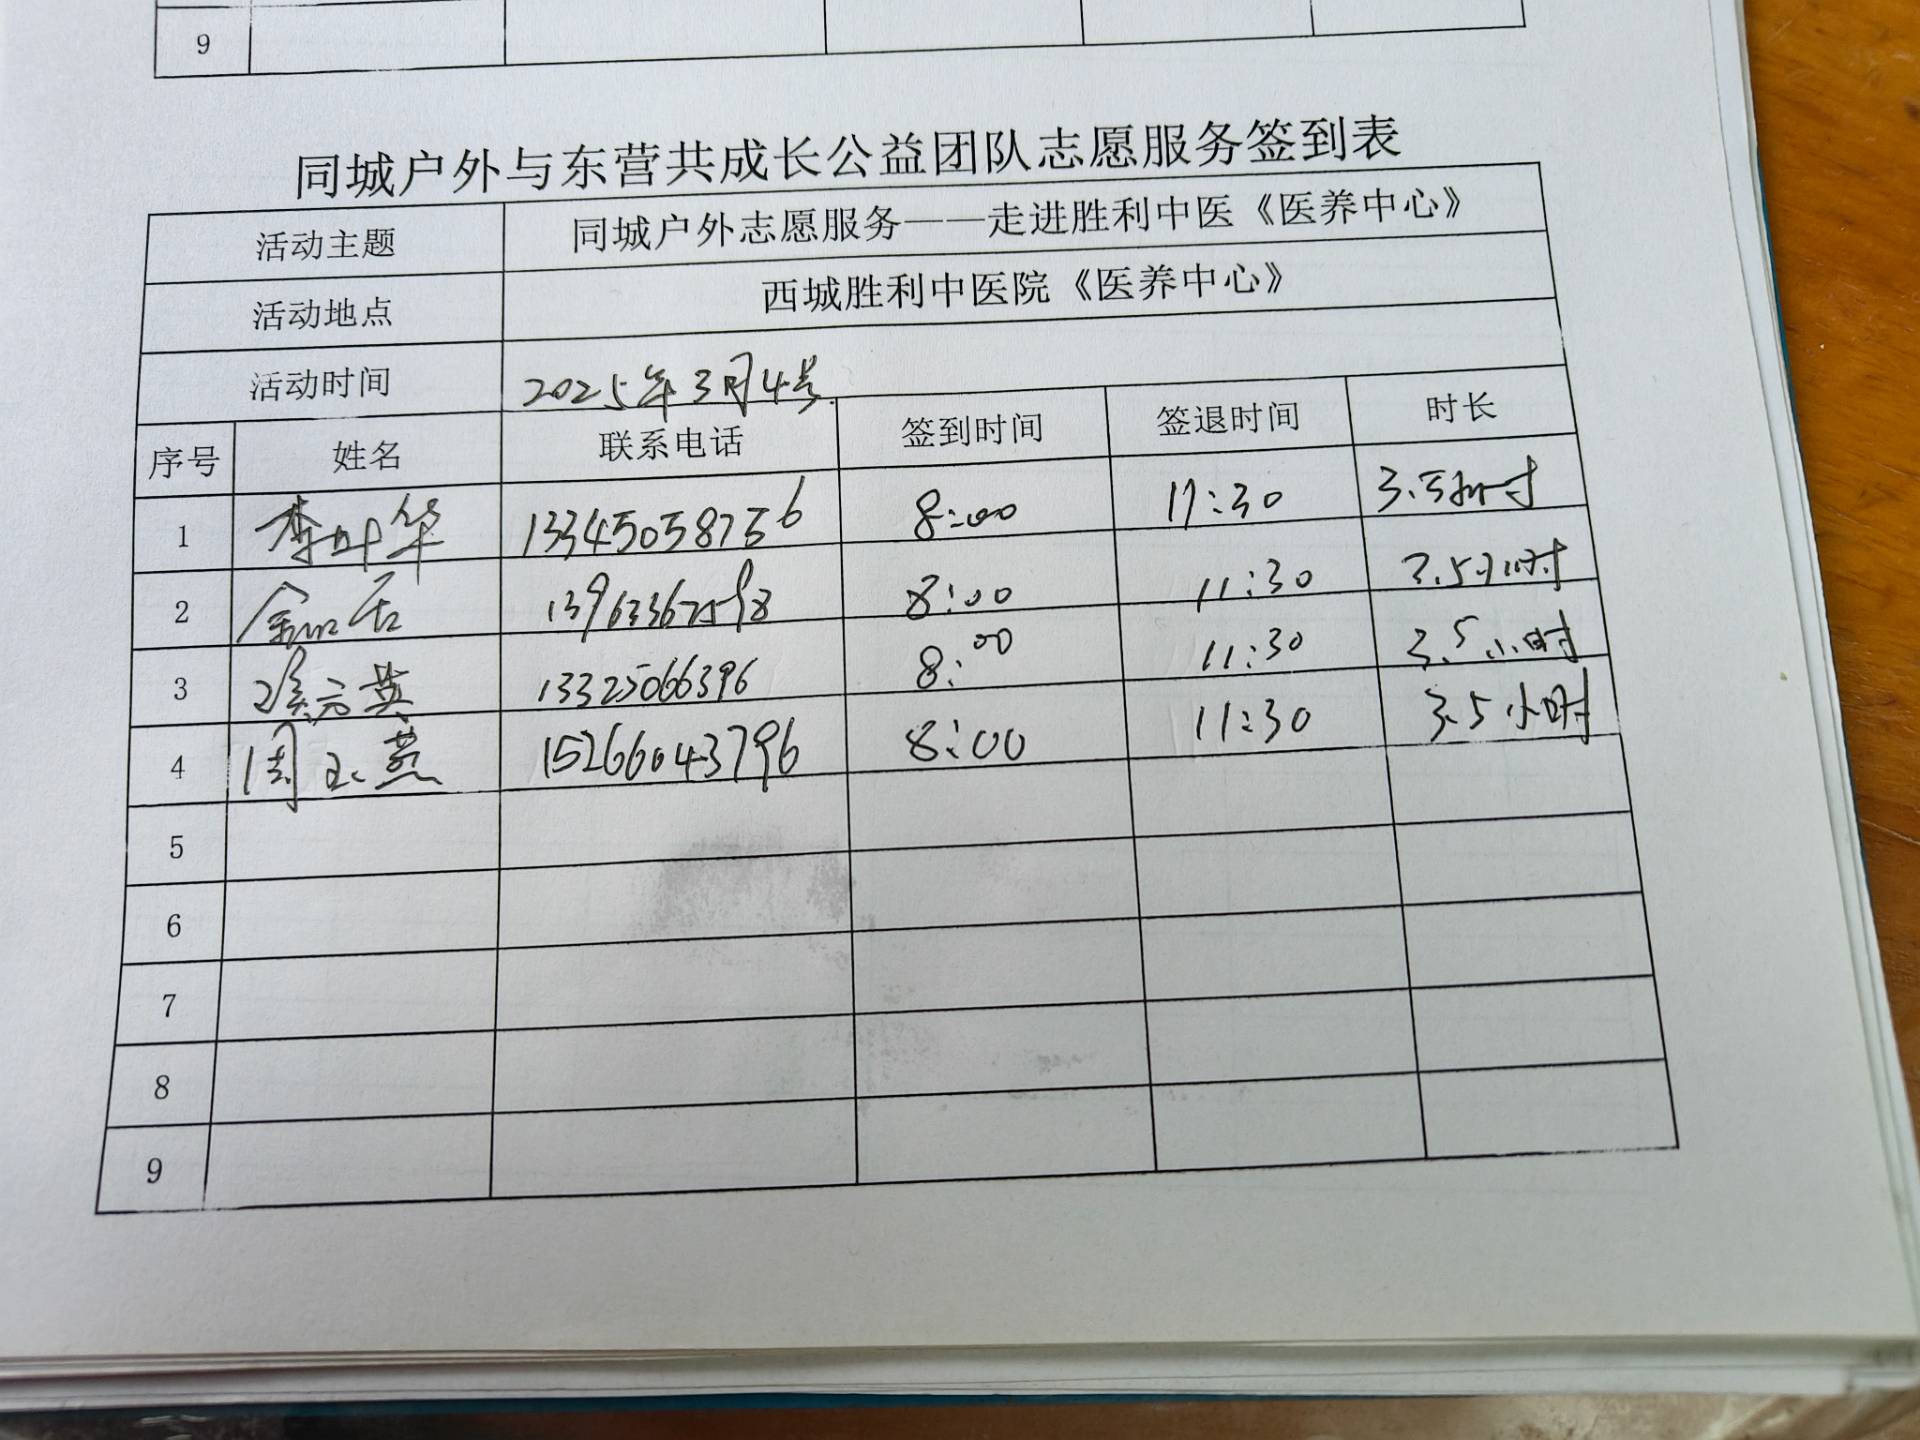 9
同城户外与东营共成长公益团队志愿服务签到表
活动主题 同城户外志愿服务——走进胜利中医《医养中心》
活动地点 西城胜利中医院《医养中心》
活动时间 2025年3月4号
序号 姓名 联系电话 签到时间 签退时间 时长
1 李 华 13345058756 8:00 11:30 3.5小时
2 8:00 11:30 3.5小时
3 英 13325066396 8:00 11:30 3.5小时
4 周玉燕 15266043796 8:00 11:30 3.5小时
5
6
7
8
9